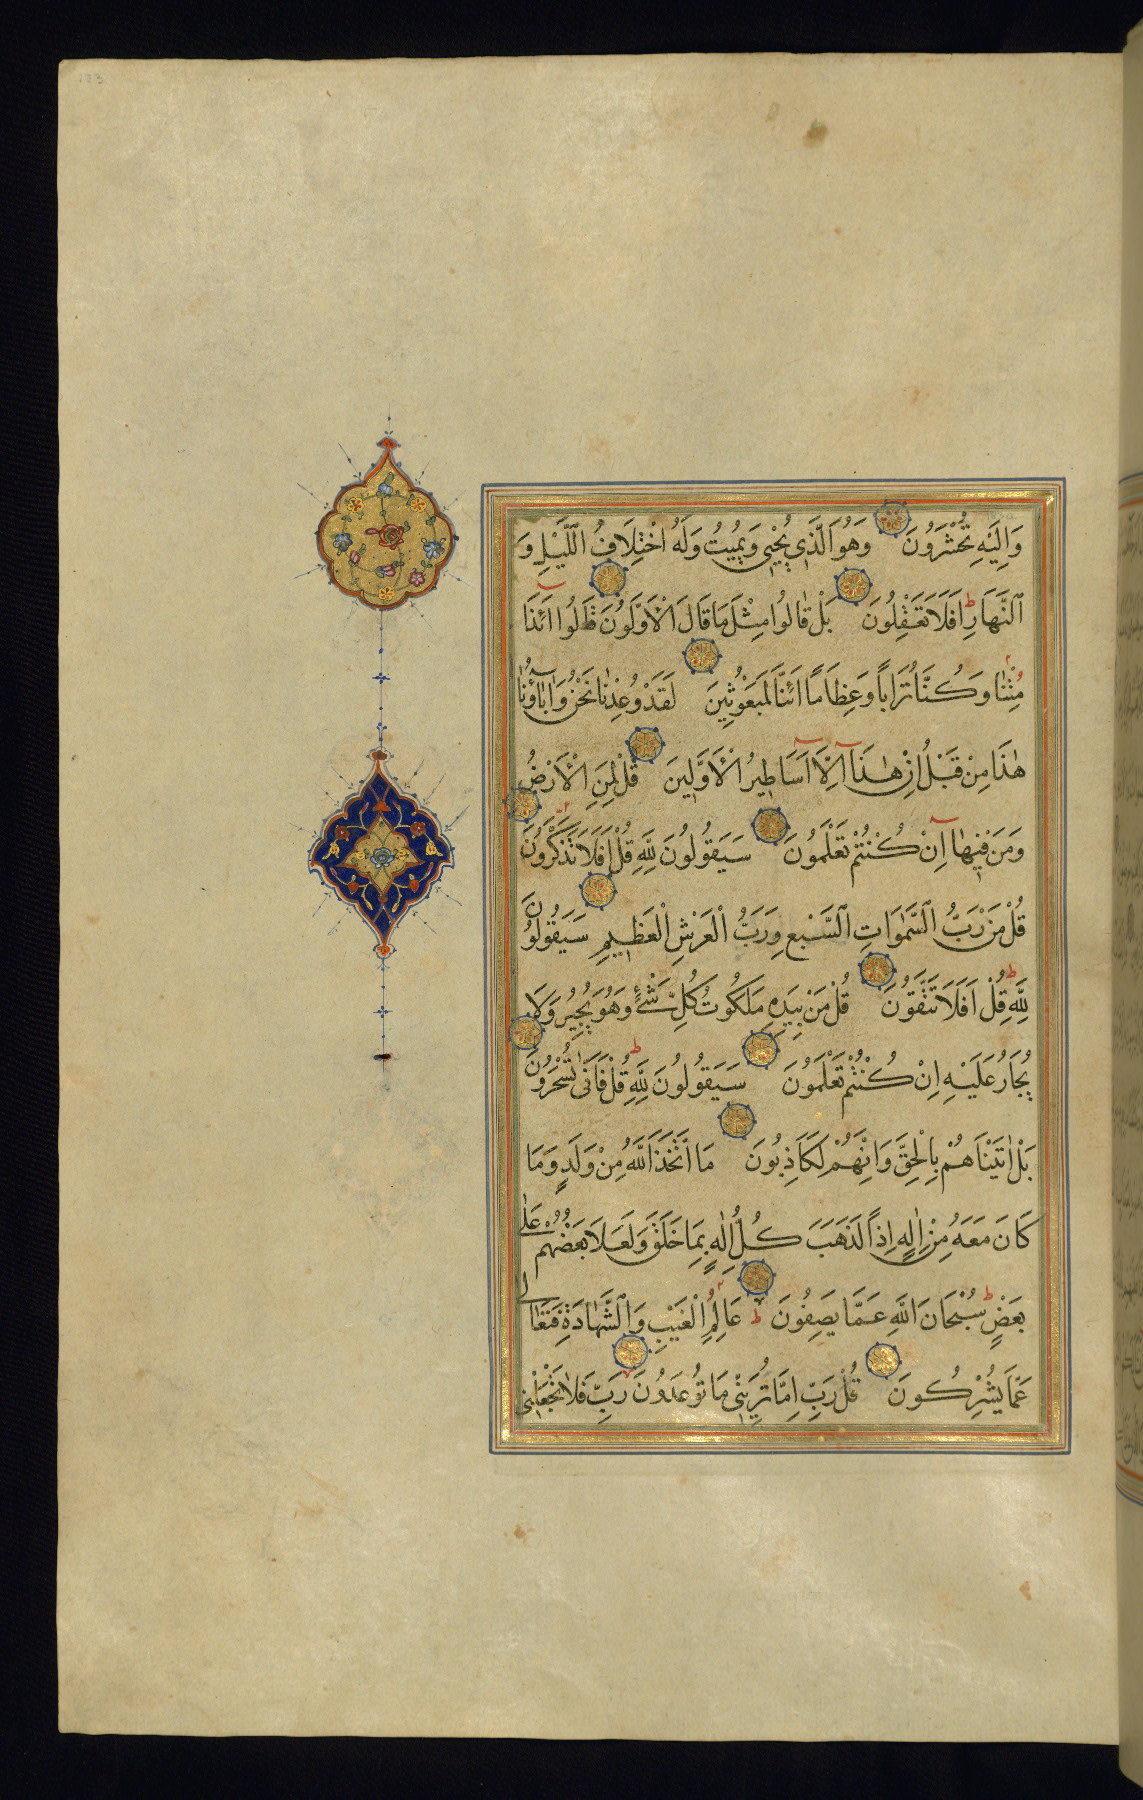 وَاِلَيْهِ تُحْشَرُونَ وَهُوَ الَّذٖى يُحْيٖى وَيُمٖيتُ وَلَهُ اخْتِلَافُ الَّيْلِ وَ
النَّهَارِ اَفَلَا تَعْقِلُونَ بَلْ قَالُوا مِثْلَ مَا قَالَ الْاَوَّلُونَ قَالُوا ءَاِذَا
مِتْنَا وَكُنَّا تُرَابًا وَعِظَامًا ءَاِنَّا لَمَبْعُوثُونَ لَقَدْ وُعِدْنَا نَحْنُ وَاٰبَاؤُنَا
هٰذَا مِنْ قَبْلُ اِنْ هٰذَا اِلَّا اَسَاطِيرُ الْاَوَّلِينَ قُلْ لِمَنِ الْاَرْضُ
وَمَنْ فِيهَا اِنْ كُنْتُمْ تَعْلَمُونَ سَيَقُولُونَ لِلّٰهِ قُلْ اَفَلَا تَذَكَّرُونَ
قُلْ مَنْ رَبُّ السَّمٰوَاتِ السَّبْعِ وَرَبُّ الْعَرْشِ الْعَظِيمِ سَيَقُولُونَ
لِلّٰهِ قُلْ اَفَلَا تَتَّقُونَ قُلْ مَنْ بِيَدِهِ مَلَكُوتُ كُلِّ شَىْءٍ وَهُوَ يُجِيرُ وَلَا
يُجَارُ عَلَيْهِ اِنْ كُنْتُمْ تَعْلَمُونَ سَيَقُولُونَ لِلّٰهِ قُلْ فَاَنّٰى تُسْحَرُونَ
بَلْ اَتَيْنَاهُمْ بِالْحَقِّ وَاِنَّهُمْ لَكَاذِبُونَ مَا اتَّخَذَ اللّٰهُ مِنْ وَلَدٍ وَمَا
كَانَ مَعَهُ مِنْ اِلٰهٍ اِذًا لَذَهَبَ كُلُّ اِلٰهٍ بِمَا خَلَقَ وَلَعَلَا بَعْضُهُمْ عَلٰى
بَعْضٍ سُبْحَانَ اللّٰهِ عَمَّا يَصِفُونَ عَالِمِ الْغَيْبِ وَالشَّهَادَةِ فَتَعَالٰى
عَمَّا يُشْرِكُونَ قُلْ رَبِّ اِمَّا تُرِيَنِّى مَا يُوعَدُونَ رَبِّ فَلَا تَجْعَلْنِى